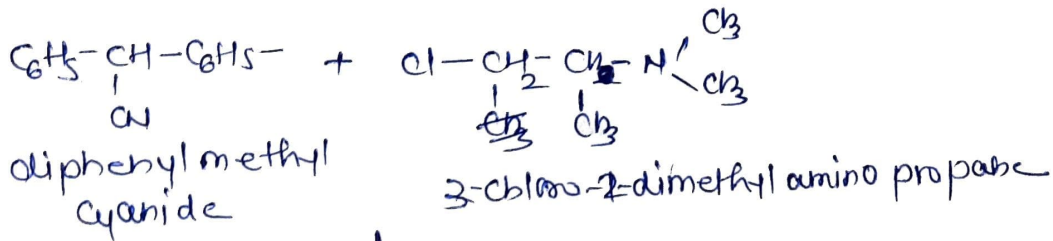 C6H5-CH-C6H5- + Cl-CH2-CH-N CH3
CN CH3 CH3
diphenylmethyl
cyanide
3-Chloro-2-dimethyl amino propane